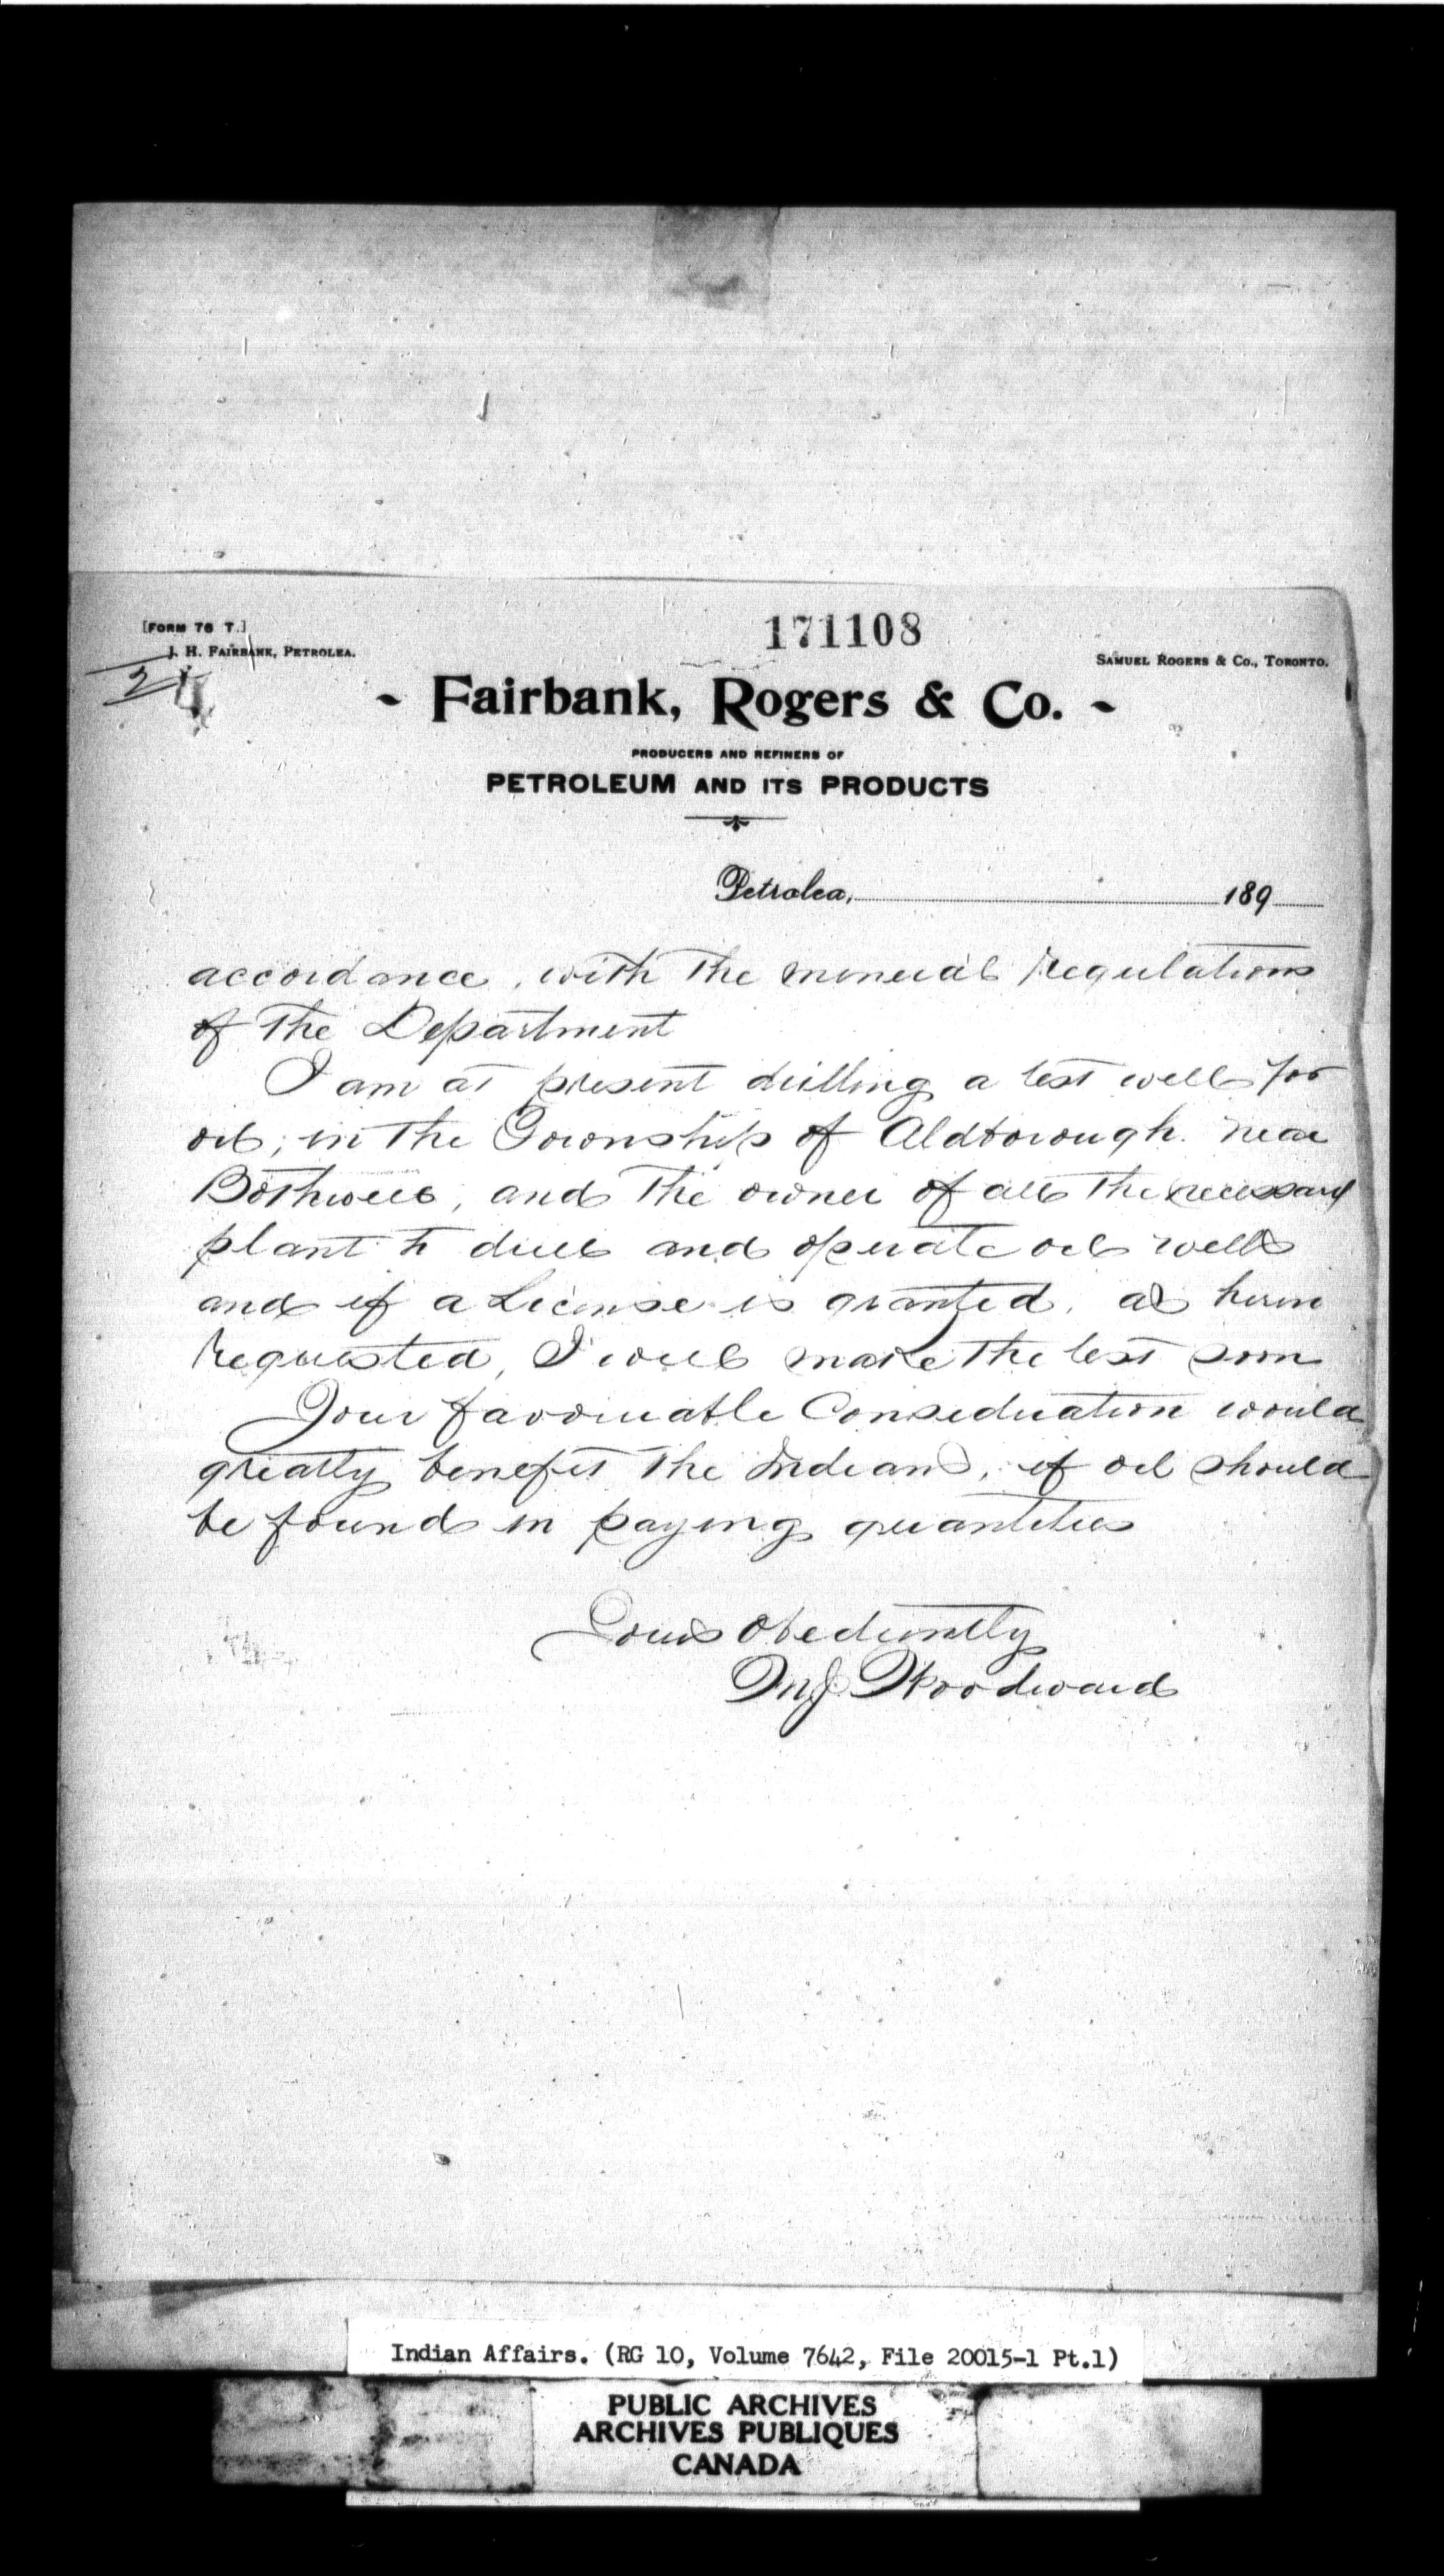 171108
[FORM 76 T.]
J. H. FAIRBANK, PETROLEA.
SAMUEL ROGERS & CO., TORONTO.
2
4
- Fairbank, Rogers & Co. -
PRODUCERS AND REFINERS OF
PETROLEUM AND ITS PRODUCTS
Petrolea, 189
accordance, with the mineral regulations
of the Department
I am at present drilling a test well for
oil, in the Township of Aldborough. near
Bothwell, and the owner of all the necessary
plant to drill and operate oil wells
and if a License is granted, as herein
requested, I will make the test soon
Your favourable Consideration would
greatly benefit the Indians, if oil should
be found in paying quantities
Yours Obediently
M J Woodward
Indian Affairs. (RG 10, Volume 7642, File 20015-1 Pt.1)
PUBLIC ARCHIVES
ARCHIVES PUBLIQUES
CANADA